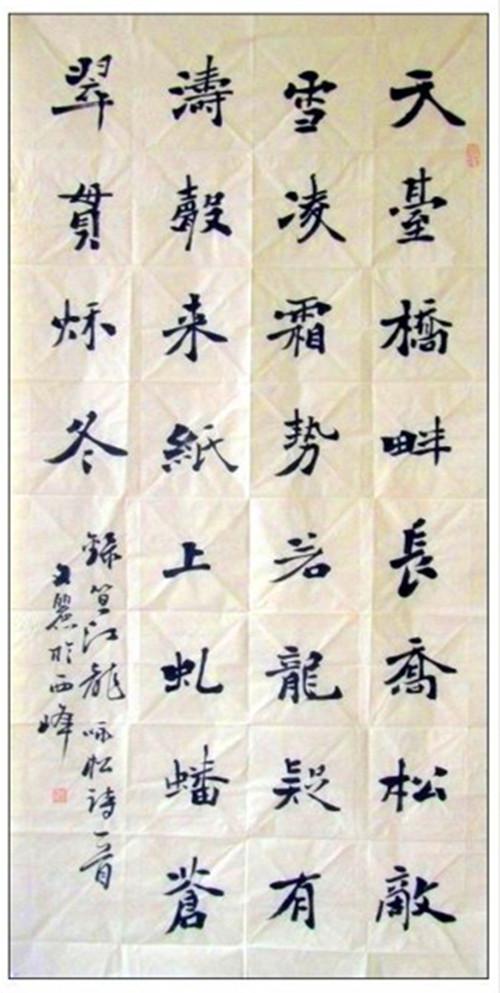 天臺橋畔長喬松敵
雪凌霜勢若龍疑有
濤聲来紙上虬蟠蒼
翠貫秌冬
錄笪江龍咏松詩一首
文於西峰